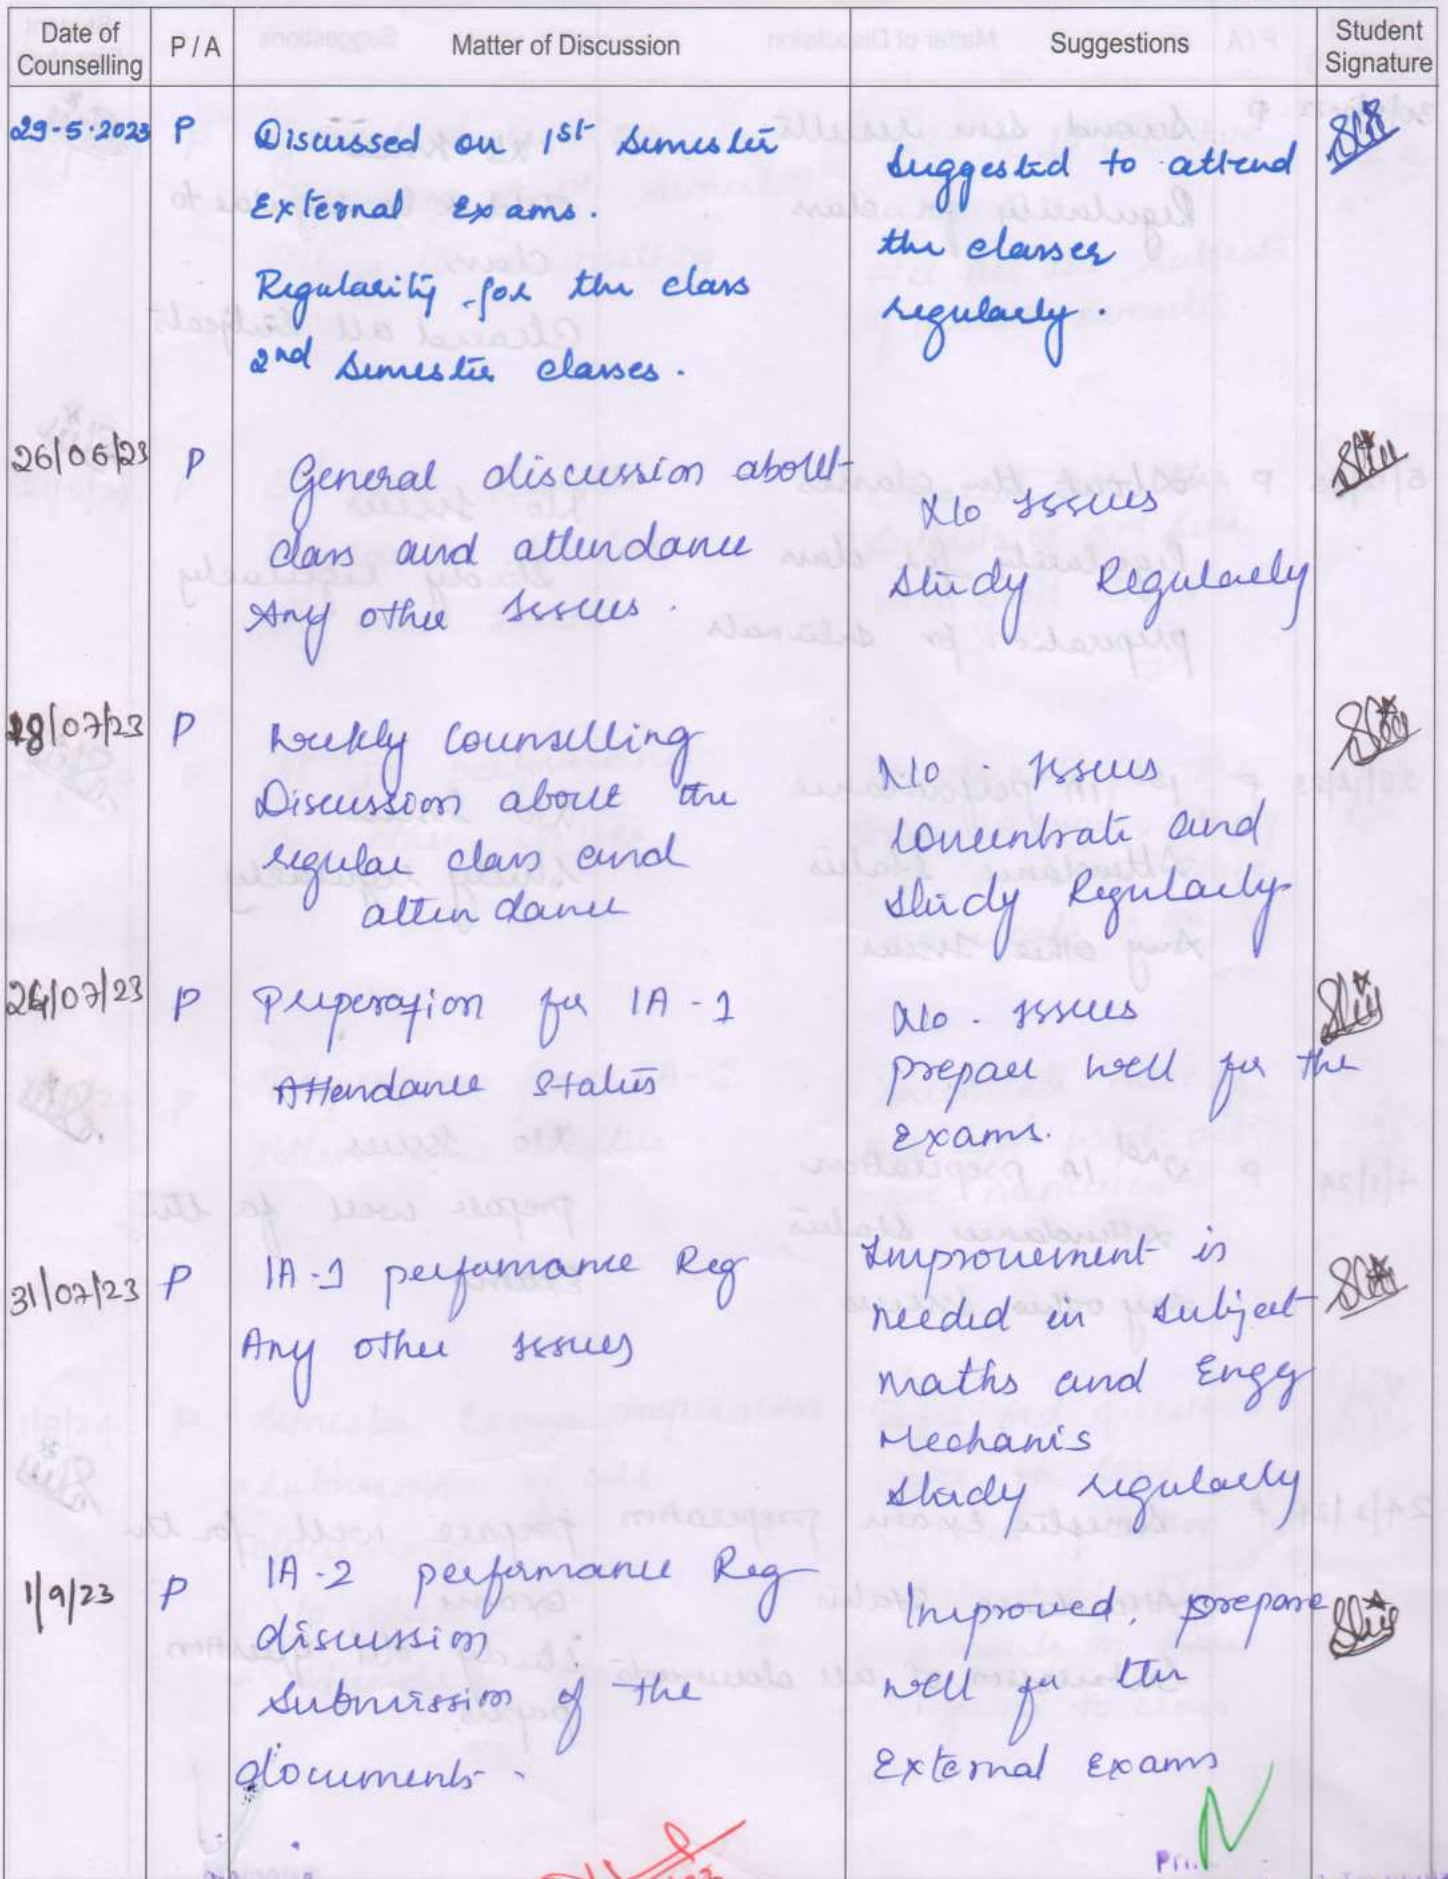 Date of Counselling P / A Matter of Discussion Suggestions Student Signature
29-5-2023 P
Discussed on 1st Semester
External Exams.
Regularity for the class
2nd Semester classes.
Suggested to attend
the classes
regularly.
26/06/23 P
General discussion about
class and attendance
Any other Issues.
No Issues
Study Regularly
18/07/23 P
Weekly Counselling
Discussion about the
regular class and
attendance
No - Issues
Concentrate and
study Regularly
24/07/23 P
Preperation for IA - 1
Attendance Status
No - Issues
prepare well for the
Exams.
31/07/23 P
IA-1 performance Reg
Any other Issues
Improvement is
needed in subject
maths and Engg
Mechanis
study regularly
1/9/23 P
IA-2 performance Reg
discussion
Submission of the
documents.
Improved, prepare
well for the
External Exams